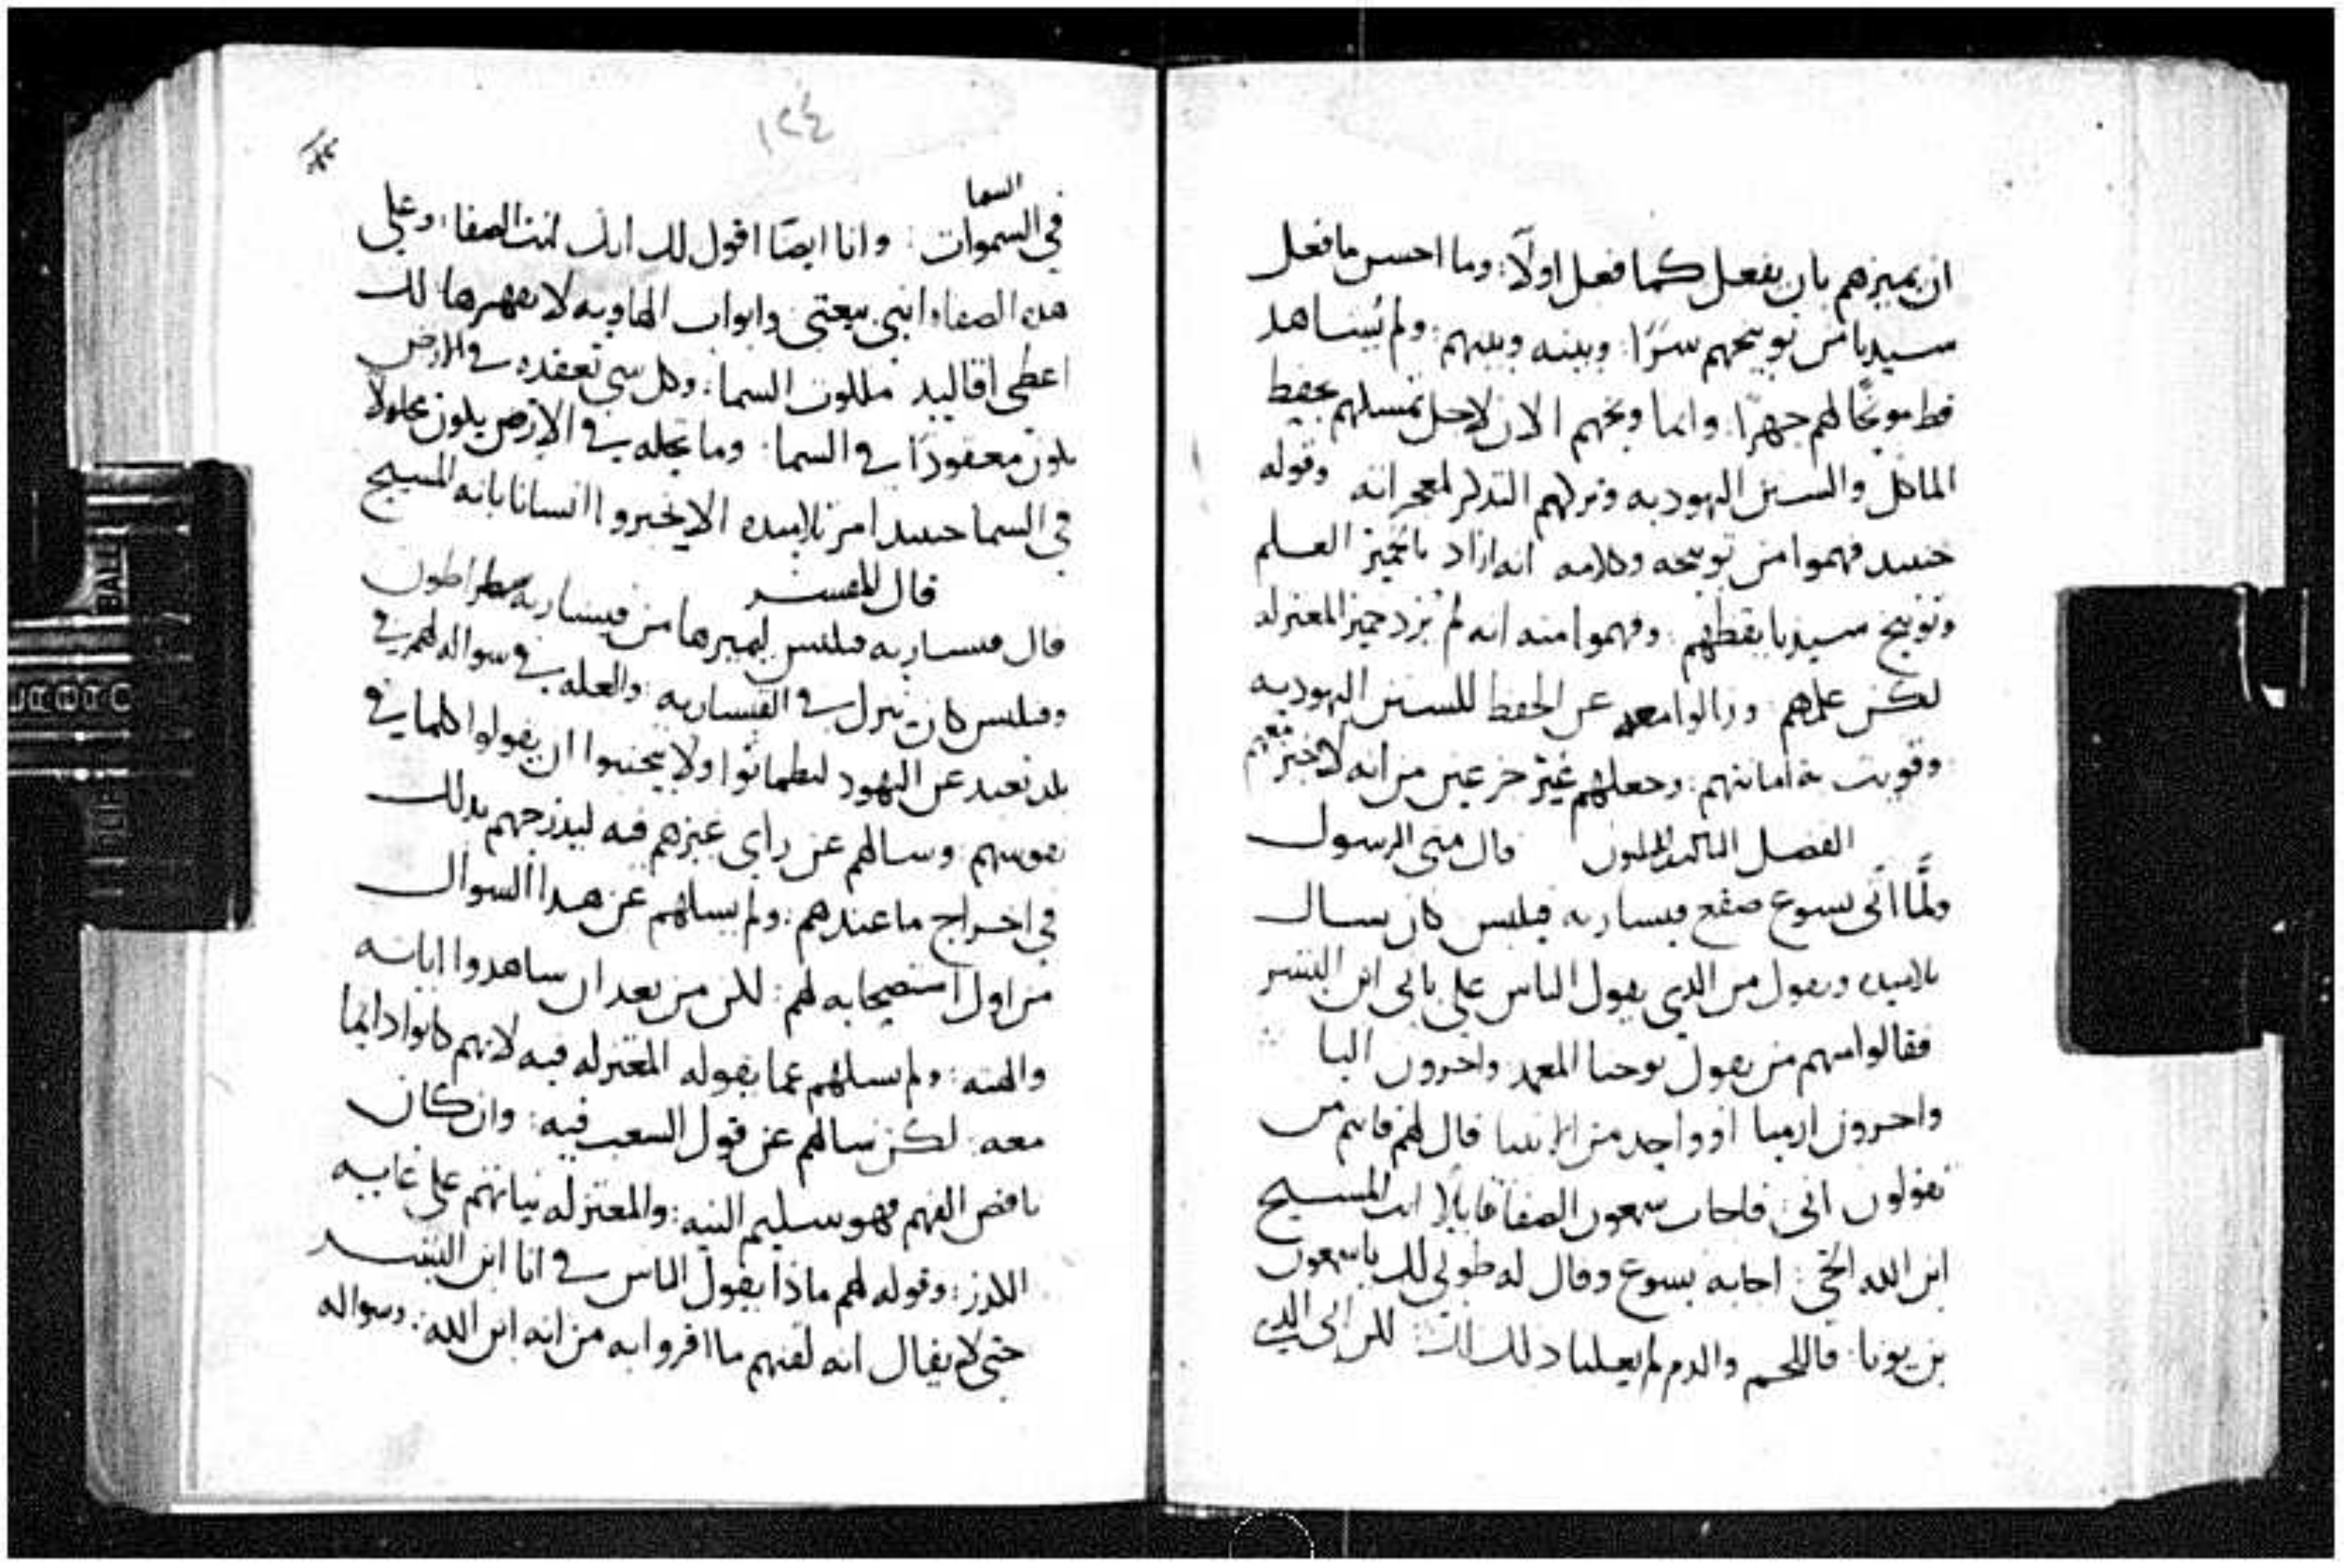 ان يميزهم بان يفعل كما فعل اولًا: وما احسن ما فعل
سيدنا من توبيخهم سرًا: وبينه وبينهم: ولم يُشاهد
قط موبخًا لهم جهرًا: وانما وبخهم الان لاجل تمسكهم بحفظ
الماكل والسنن اليهوديه وتركهم التذكر لمعجزاته وقوله
حينيد فهموا من توبيخه وكلامه انه اراد بالخمير العلم
وتوبيخ سيدنا يقظهم: وفهموا منه انه لم يُرد خمير المعتزله
لكن علمهم: وزالوا معه عن الحفظ للسنن اليهوديه
وقويت به امانتهم: وجعلهم غير جزعين من انه لا خبز معهم
الفصل قال متى الرسول
ولمَّا اتى يسوع صقع قيساريه فيلبس كان يسال
تلاميذه ويقول من الذي يقول الناس علي باني ابن البشر
فقالوا منهم من يقول يوحنا المعمد واخرون اليا
واخرون ارميا او واحد من الانبيا قال لهم فانتم من
تقولون اني: فاجاب سمعون الصفا قايلًا انت المسيح
ابن الله الحي: اجابه يسوع وقال له طوبى لك ياسمعون
بن يونا: فاللحم والدم لم يعلنا ذلك لك: لكن ابي الذي
١٢٤
السما
في السموات: وانا ايضًا اقول لك انك انت الصفا: وعلى
هذه الصفا ابني بيعتي وابواب الهاويه لا تقهرها لك
اعطي اقاليد ملكوت السما: وكل شي تعقده في الارض
يكون معقودًا في السما: وما تحله في الارض يكون محلولًا
في السما حينيد امر تلاميده الا يخبروا انسانا بانه المسيح
قال المفسر
قال قيساريه فيلبس ليميزها من قيساريه سطراطون
وفيلبس كان ينزل في القيساريه: والعله في سواله لهم في
بلد بعيد عن اليهود ليطمانوا ولا يجبنوا ان يقولوا كلما في
نفوسهم: وسالهم عن راي غيرهم فيه ليدرجهم بذلك
في اخراج ما عندهم: ولم يسالهم عن هدا السوال
من اول استصحابه لهم: لكن من بعد ان شاهدوا اياته
والهته: ولم يسلهم عما يقوله المعتزله فيه لانهم كانوا دايما
معه: لكن سالهم عن قول الشعب فيه: وان كان
ناقص الفهم فهو سليم النيه: والمعتزله نياتهم على غايه
الكدر: وقوله لهم ماذا يقول الناس في انا ابن البشر
حتى لا يقال انه لقنهم ما اقروا به من انه ابن الله: وسواله